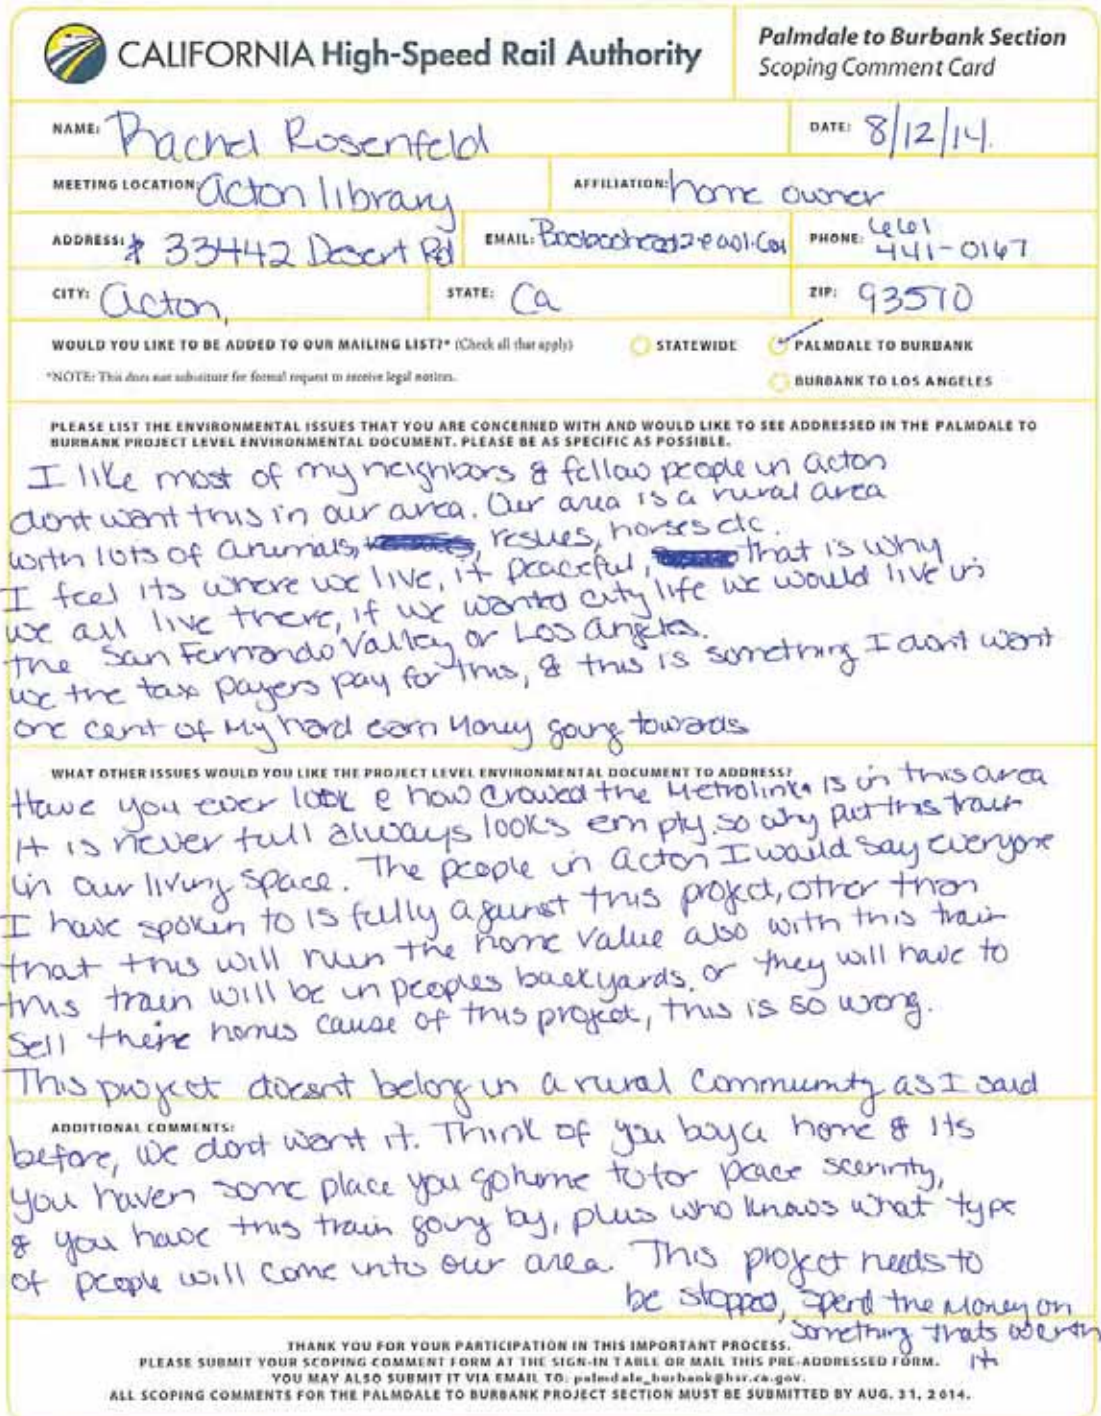 CALIFORNIA High-Speed Rail Authority
Palmdale to Burbank Section
Scoping Comment Card
NAME: Rachel Rosenfeld
DATE: 8/12/14.
MEETING LOCATION: Acton library
AFFILIATION: home owner
ADDRESS: 33442 Desert Rd
EMAIL:
PHONE: 661 441-0167
CITY: Acton,
STATE: Ca
ZIP: 93510
WOULD YOU LIKE TO BE ADDED TO OUR MAILING LIST?* (Check all that apply)
STATEWIDE
PALMDALE TO BURBANK
*NOTE: This does not substitute for formal request to receive legal notices.
BURBANK TO LOS ANGELES
PLEASE LIST THE ENVIRONMENTAL ISSUES THAT YOU ARE CONCERNED WITH AND WOULD LIKE TO SEE ADDRESSED IN THE PALMDALE TO
BURBANK PROJECT LEVEL ENVIRONMENTAL DOCUMENT. PLEASE BE AS SPECIFIC AS POSSIBLE.
I like most of my neighbors & fellow people in acton
dont want this in our area. Our area is a rural area
with lots of animals, resues, horses etc.
I feel its where we live, it peaceful, that is why
we all live there, if we wanted city life we would live in
the San Fernando Valley or Los Angeles.
we the tax payers pay for this, & this is something I dont want
one cent of my hard earn money going towards
WHAT OTHER ISSUES WOULD YOU LIKE THE PROJECT LEVEL ENVIRONMENTAL DOCUMENT TO ADDRESS?
Have you ever look @ how crowed the Metrolink is in this area
It is never full always looks empty, so why put this train
in our living space. The people in acton I would say everyone
I have spoken to is fully against this project, other than
that this will ruin the home value also with this train
this train will be in peoples backyards, or they will have to
sell there homes cause of this project, this is so wrong.
This project doesnt belong in a rural community as I said
ADDITIONAL COMMENTS:
before, we dont want it. Think of you buy a home & its
you haven some place you go home to for peace
& you have this train going by, plus who knows what type
of people will come into our area. This project needs to
be stopped, spend the money on
something thats worth
it
THANK YOU FOR YOUR PARTICIPATION IN THIS IMPORTANT PROCESS.
PLEASE SUBMIT YOUR SCOPING COMMENT FORM AT THE SIGN-IN TABLE OR MAIL THIS PRE-ADDRESSED FORM.
YOU MAY ALSO SUBMIT IT VIA EMAIL TO: palmdale_burbank@hsr.ca.gov.
ALL SCOPING COMMENTS FOR THE PALMDALE TO BURBANK PROJECT SECTION MUST BE SUBMITTED BY AUG. 31, 2014.